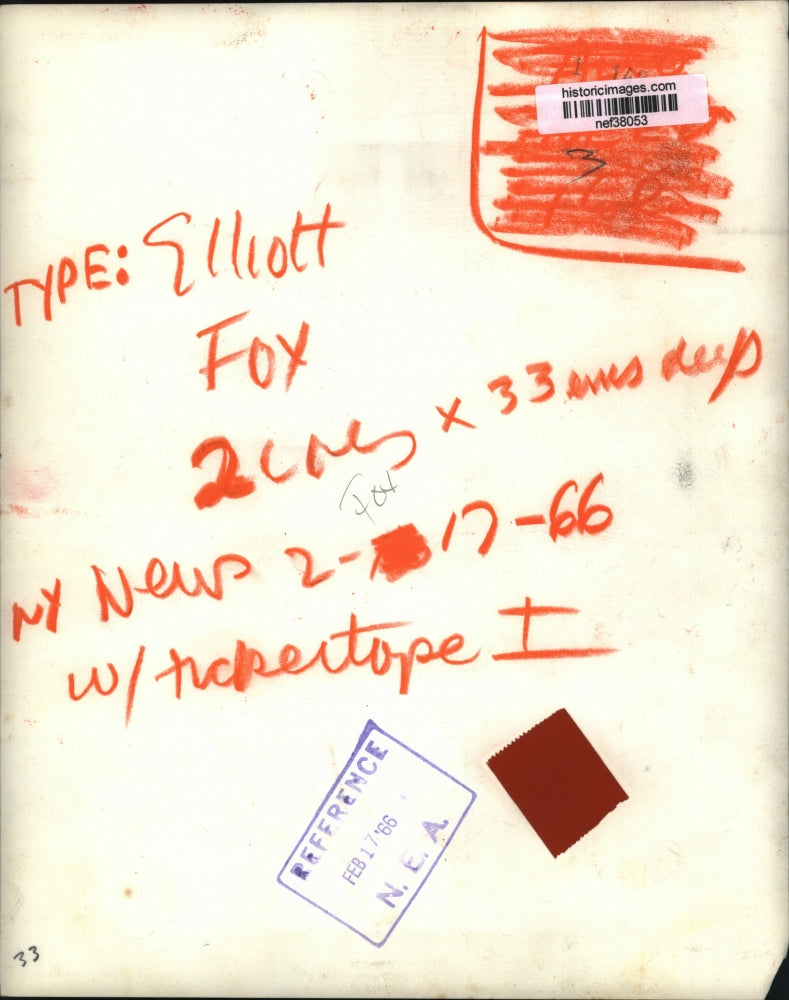 historicimages.com
nef38053
3
TYPE: Elliott
Fox
2 cols x 33 ems deep
Fox
NY News 2-17-66
w/tickertape I
REFERENCE
FEB 17 '66
N. E. A.
33